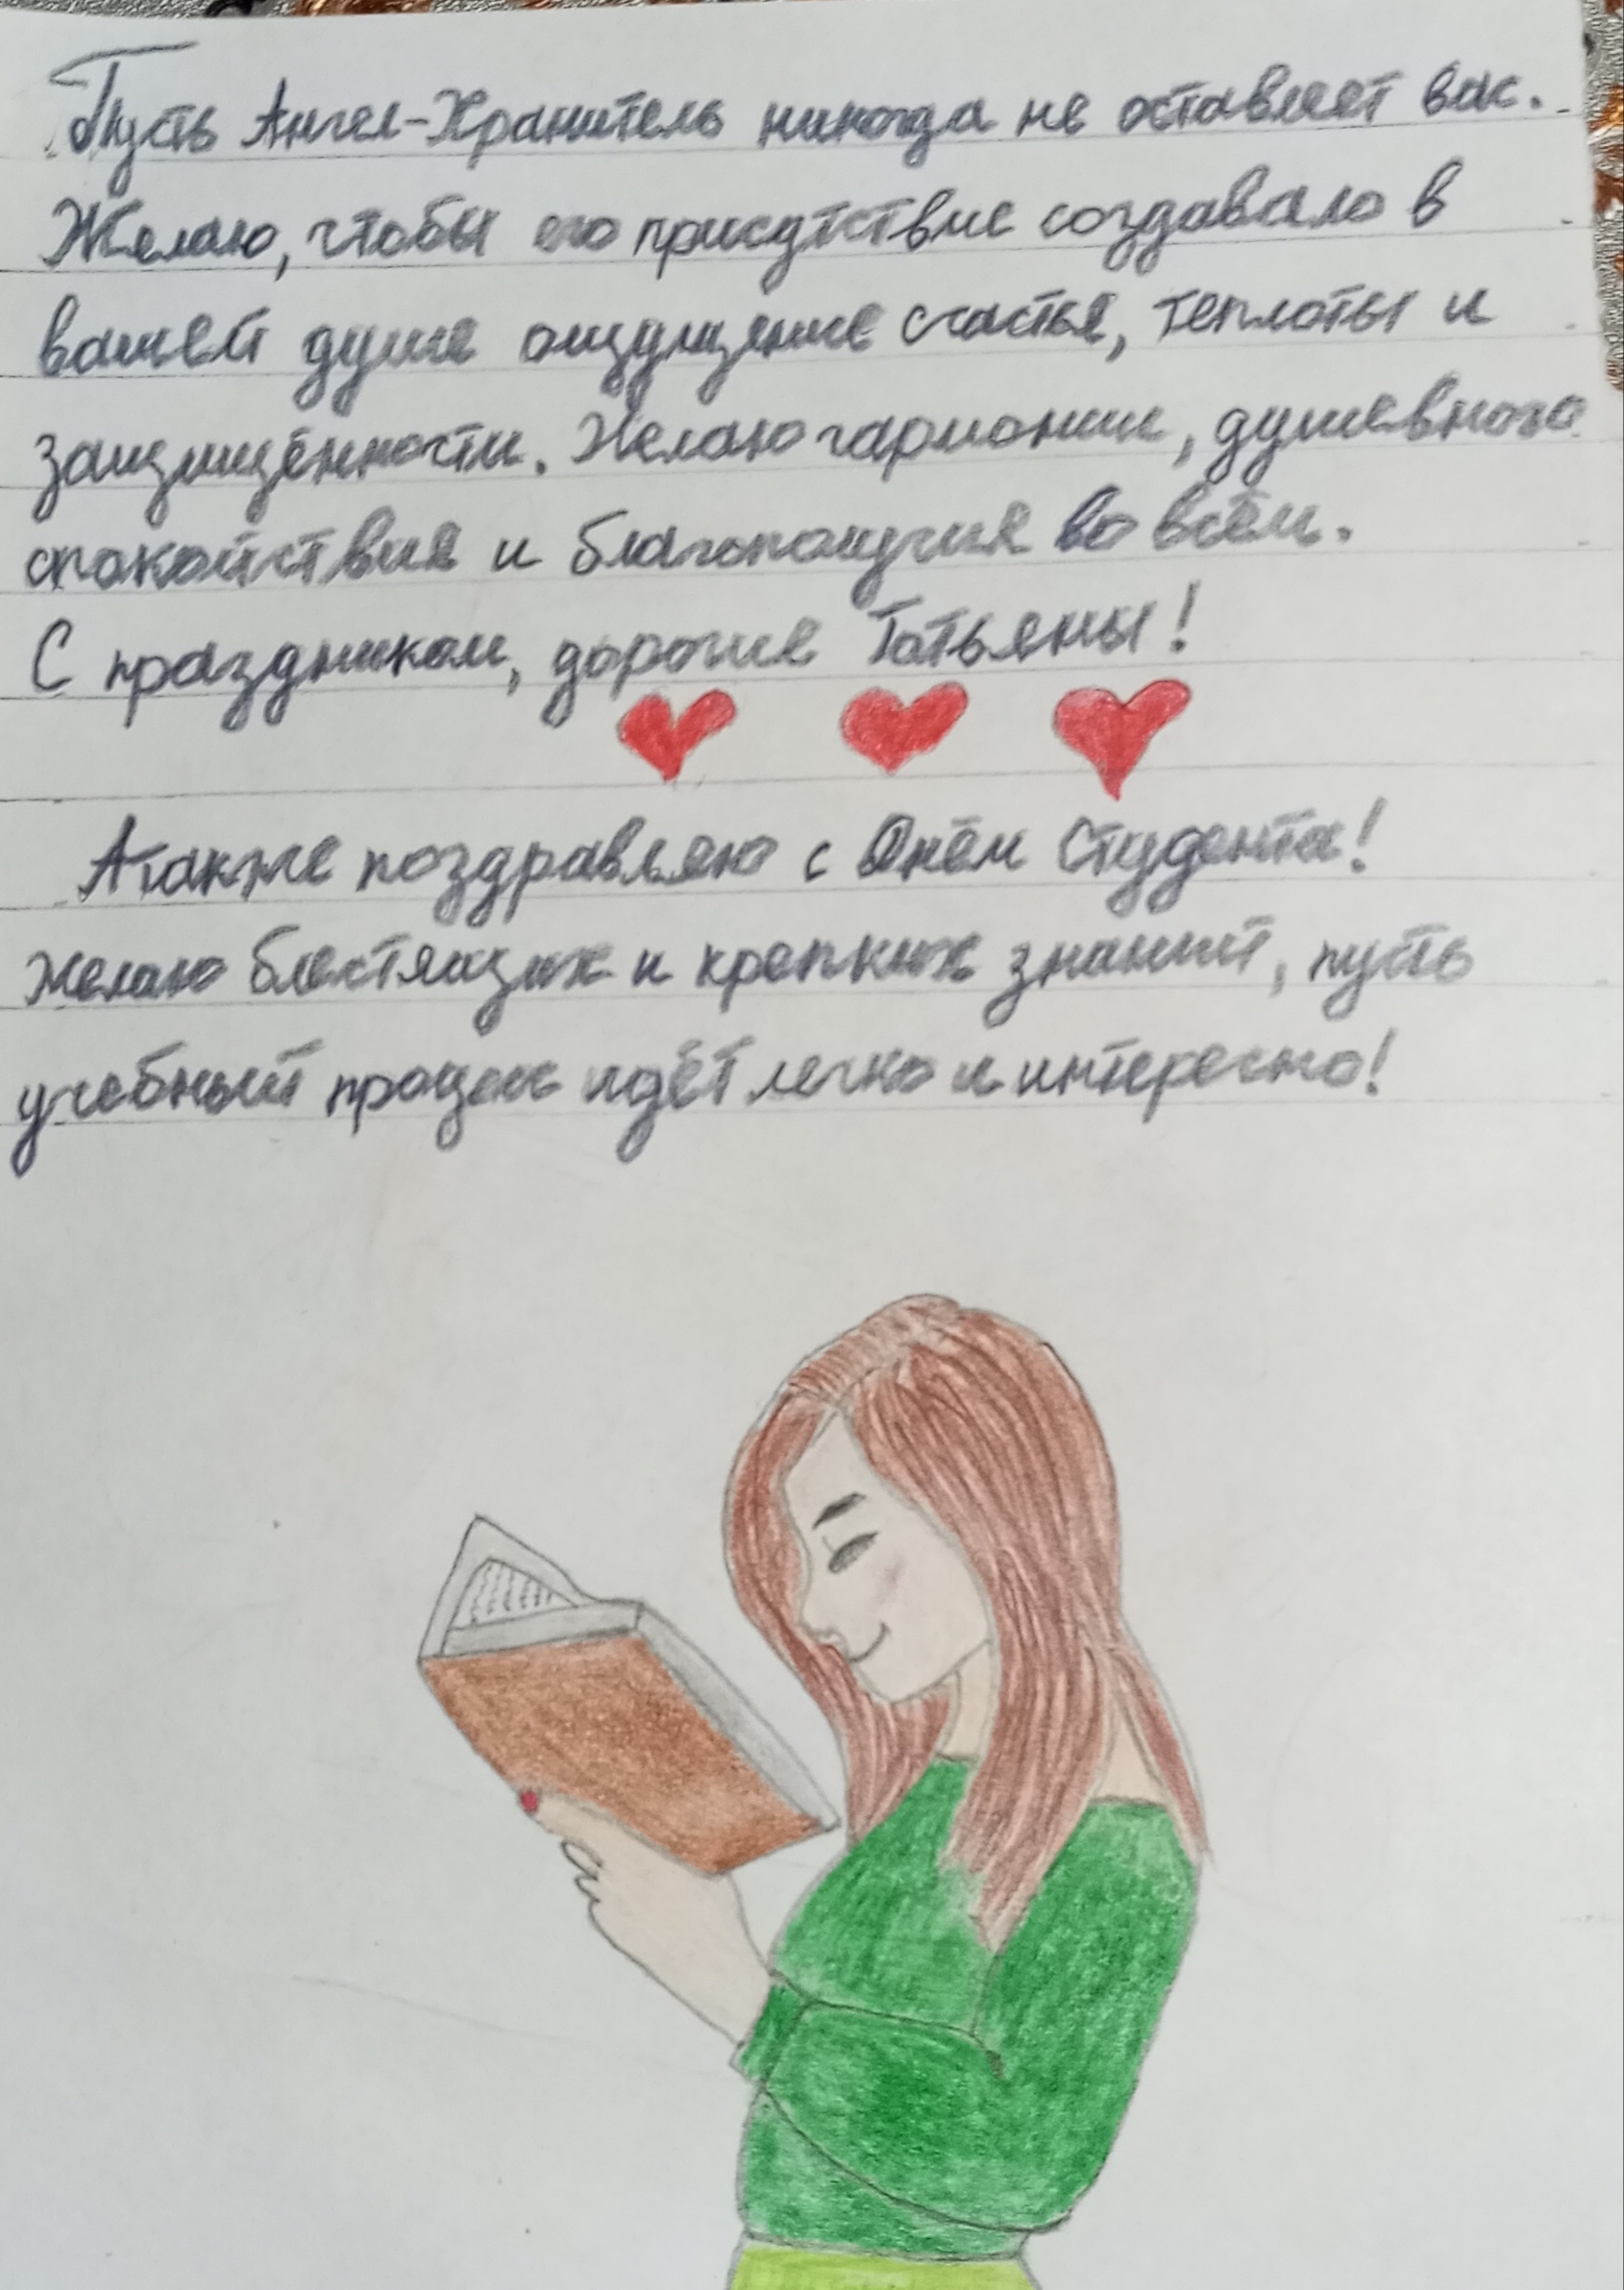 Пусть Ангел-Хранитель никогда не оставляет вас.
Желаю, чтобы его присутствие создавало в
вашей душе ощущение счастья, теплоты и
защищённости. Желаю гармонии, душевного
спокойствия и благополучия во всём.
С праздником, дорогие Татьяны!
А также поздравляю с Днём Студента!
Желаю блестящих и крепких знаний, пусть
учебный процесс идёт легко и интересно!